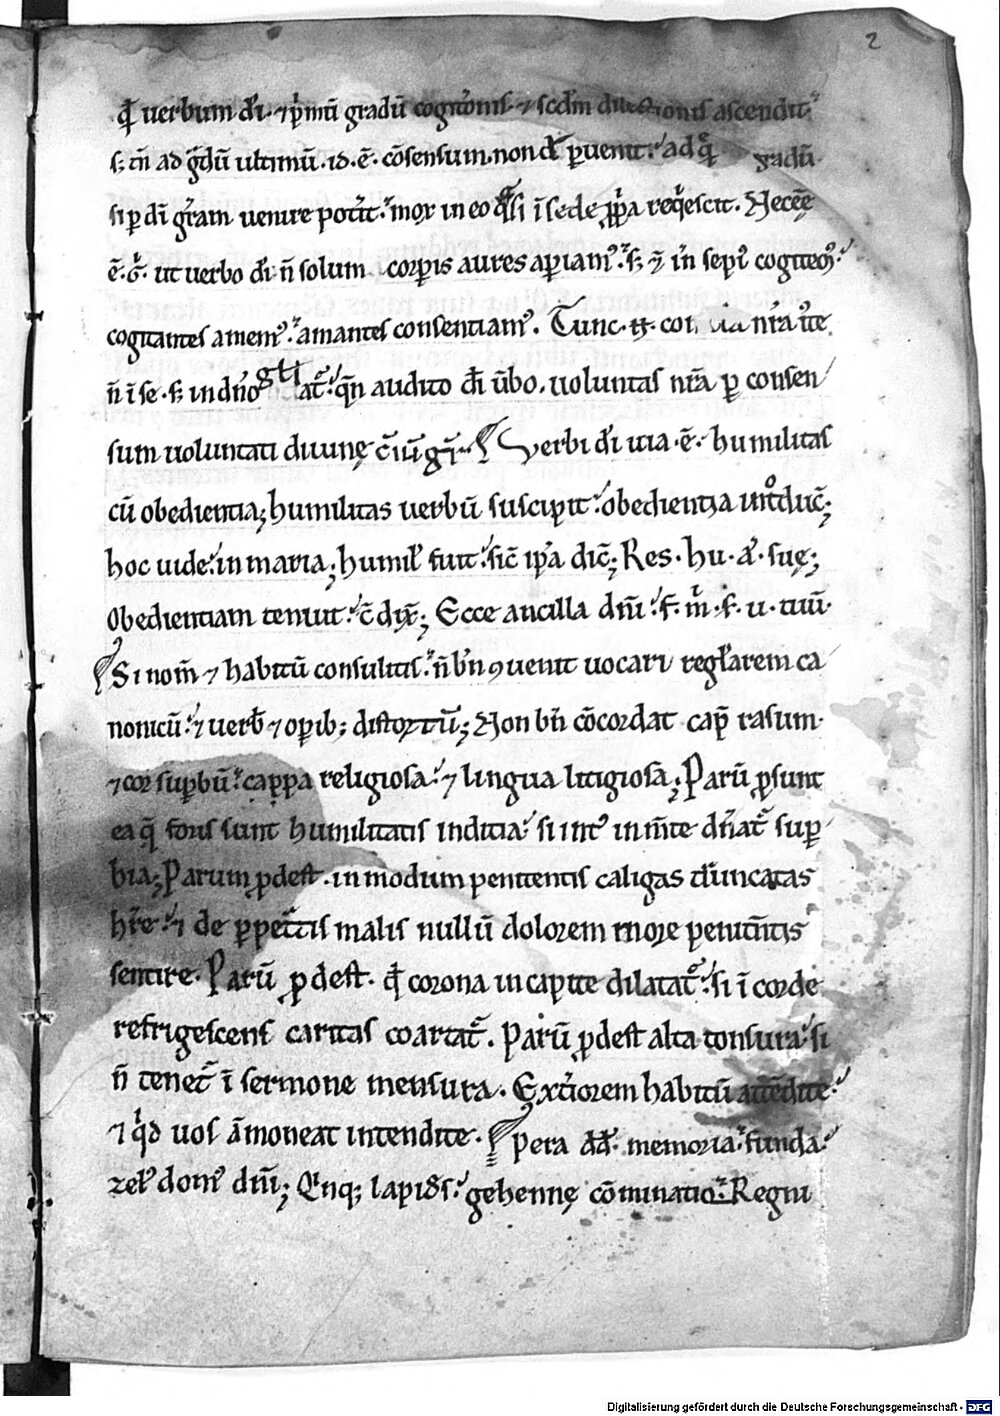 2
qđ uerbum dī. ⁊ p̄mū gradū cogitōnis. ⁊ scd̄m dilectionis ascendit.
s; tn̄ ad g̃dū ultimū. id. ē. cōsensum. non dū ꝑuenit. ad q̄ gadū
si ꝑ dī gr̄am uenire potit. mox in eo q̃si ī sede ꝓp̃a req̄escit. Necēē
ē. ḡ. ut uerbo dī n̄ solum corꝑis aures aꝑiamꝰ. s; ⁊ in sepiꝰ cogitemꝰ.
cogitantes amemꝰ. amantes consentiamꝰ. Tunc nr̄a
n̄ ī se. s; in dn̄o gl̄iat᷑. qn̄ audito dī ūbo. uoluntas nr̄a ꝑ consen
sum uoluntati diuinę c̄iūgi᷑. Verbi dī uia. ē. humilitas
cū obedientia; humilitas uerbū suscipit. obedientia introduc̄;
hoc uide in maria; humil̄ fuit. sic̄ ip̄a dic̄; Res. hu. a. suę;
Obedientiam tenuit. c̄ dix̄; Ecce ancilla dn̄i. f. m̄. s. u. tuū.
Si nom̄ ⁊ habitū consulitis. n̄ bn̄ ꝯuenit uocari regl̄arem ca
nonicū. ⁊ uerb̄ ⁊ oꝑib; distortū; Non bn̄ cōcordat cap̄ rasum.
⁊ cor suꝑbū. cappa religiosa. ⁊ lingua litigiosa; Parū ꝓsunt
ea q̄ foris sunt humilitatis inditia. si int᷑ in m̄te dn̄at᷑ suꝑ
bia; Parum ꝓdest. in modum penitentis caligas dūncatas
hr̄e. ⁊ de ꝑpet̃tis malis nullū dolorem more penitētis
sentire. Parū ꝓdest. qđ corona in capite dilatat᷑. si ī corde
refrigescens caritas coartat᷑. Parū ꝓdest alta tonsura. si
n̄ tenet᷑ ī sermone mensura. Ext̃iorem habitū attēdite.
⁊ q̄d uos āmoneat intendite. Peta ad̄. memoria. funda.
zelꝰ domꝰ dn̄i; Q̄inq; lapid̄s. gehennę cōminatio. Regni
Digitalisierung gefördert durch die Deutsche Forschungsgemeinschaft - DFG